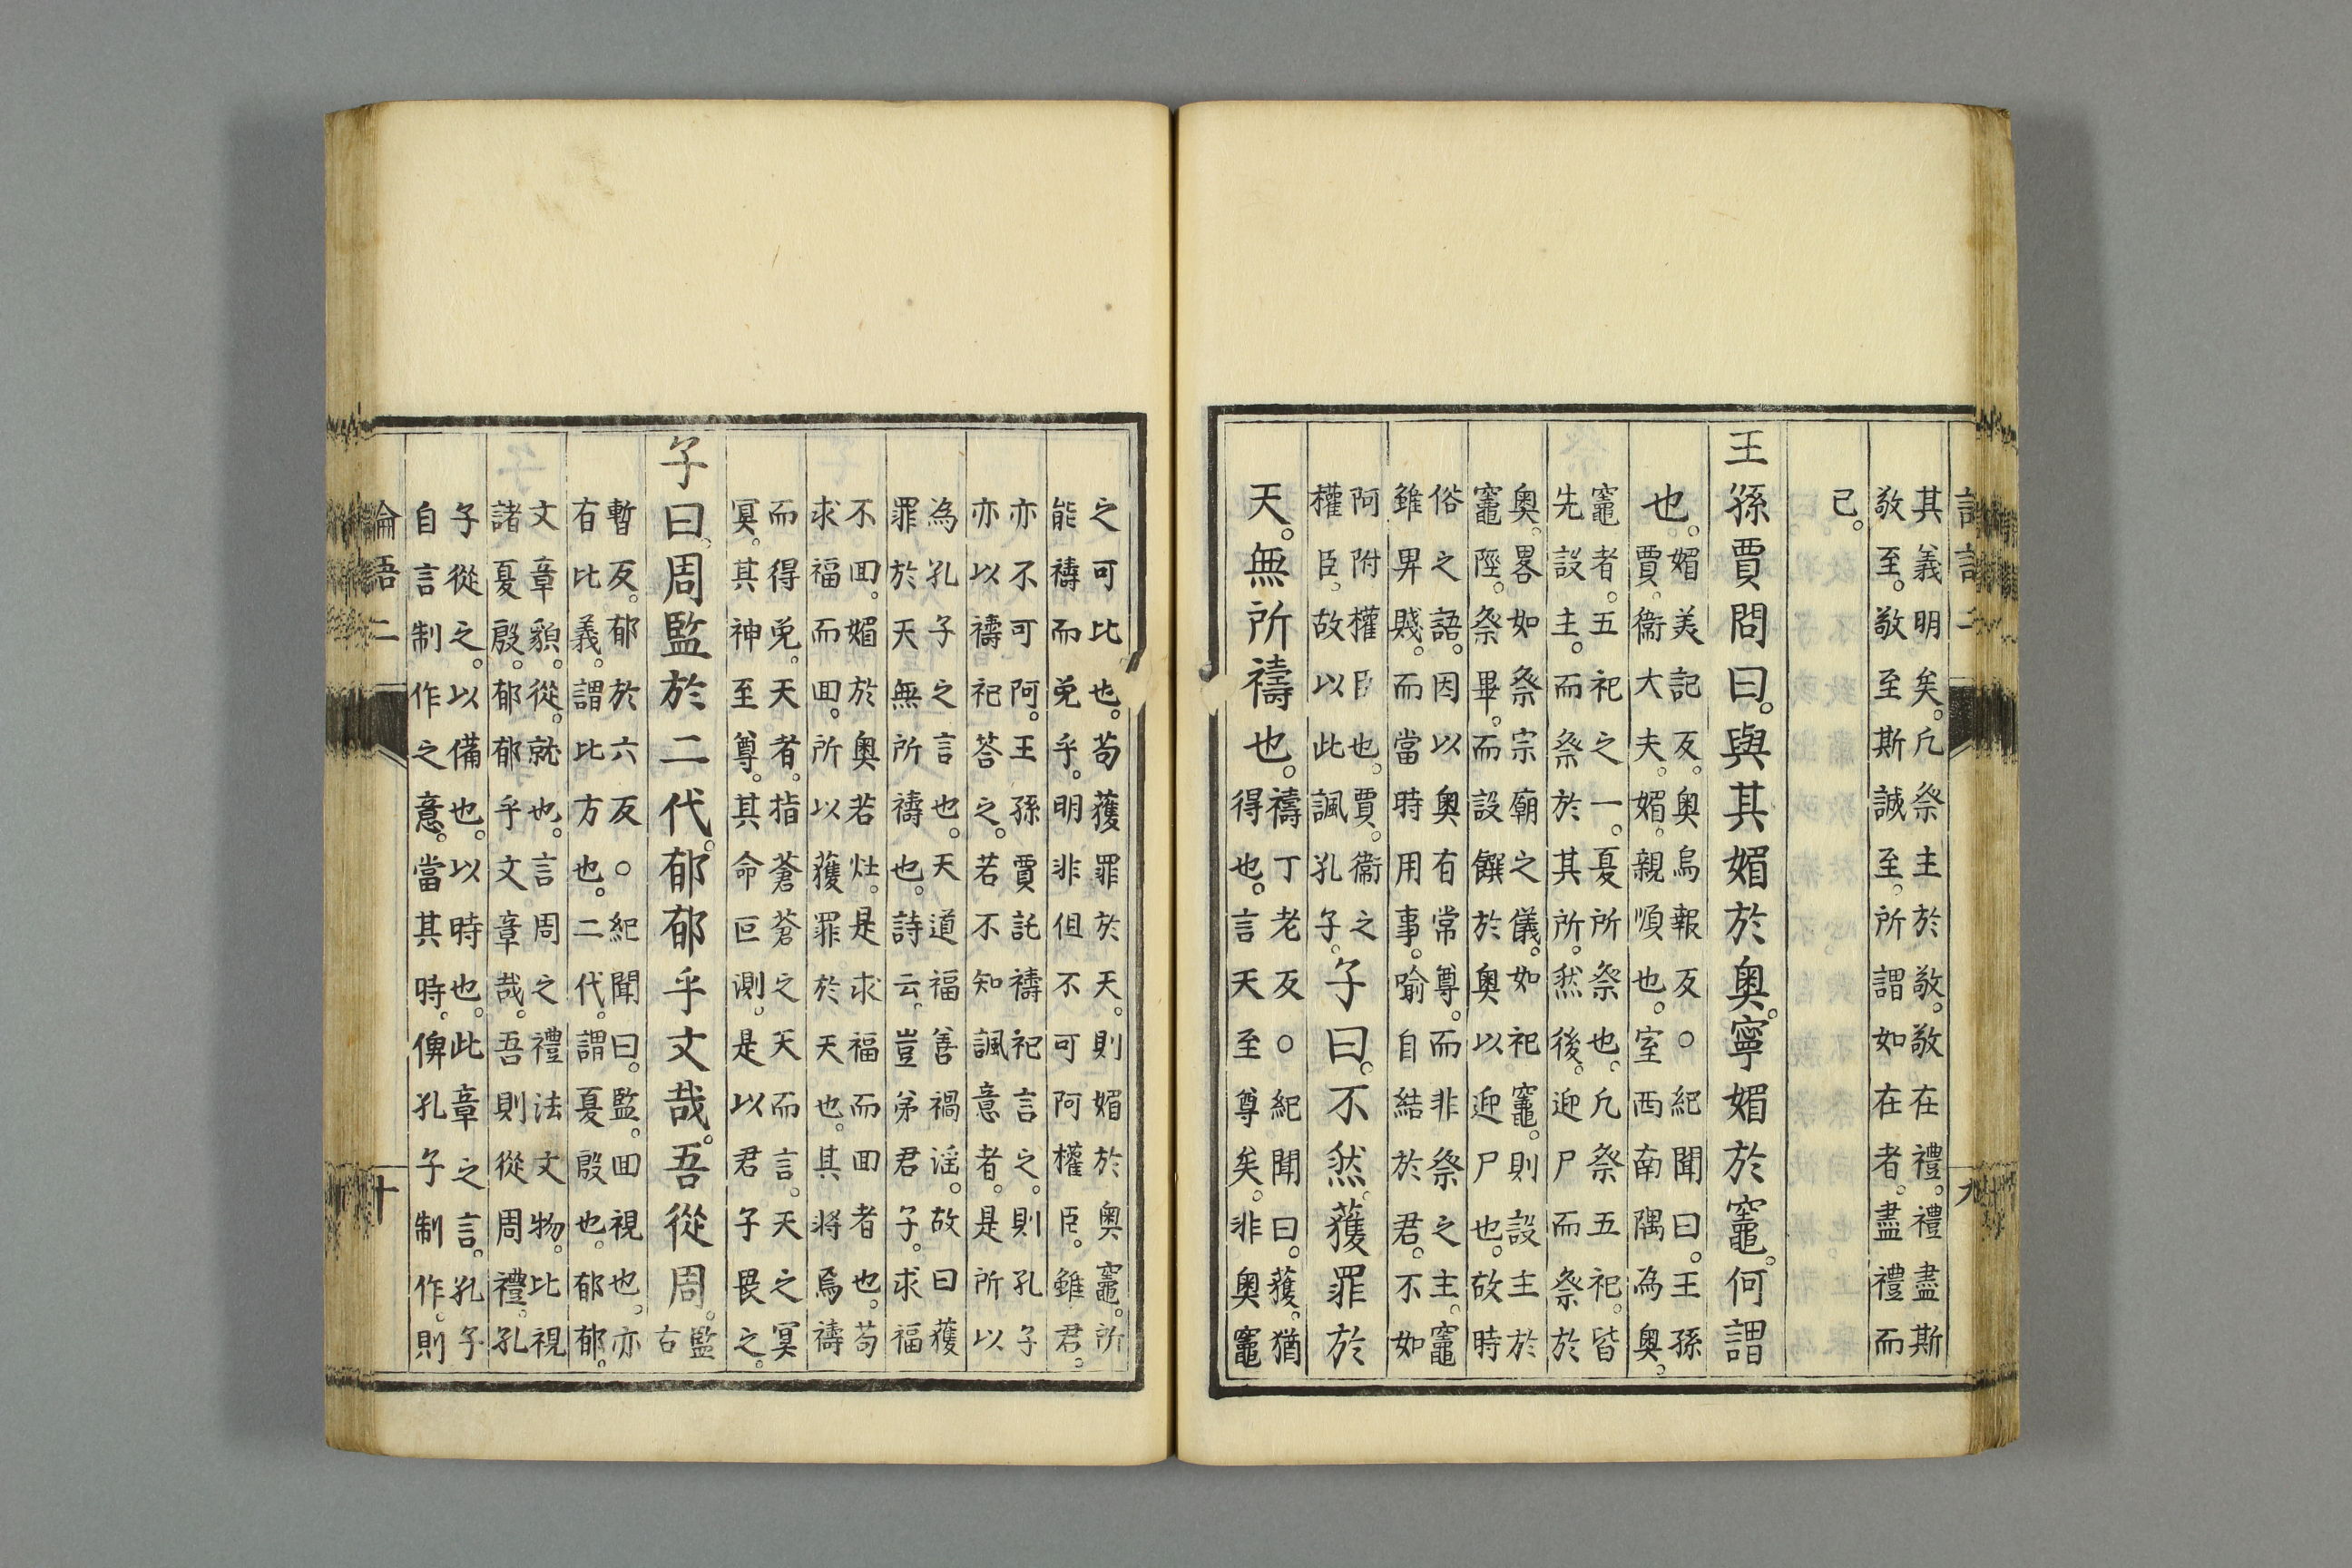 其義明矣。凡祭主於敬。敬在禮。禮盡斯
敬至。敬至斯誠至。所謂如在者。盡禮而
已。
王孫賈問曰。與其媚於奧。寧媚於竈。何謂
也。
媚美記反。奧烏報反○紀聞曰。王孫
賈。衞大夫。媚。親順也。室西南隅為奧。
竈者。五祀之一。夏所祭也。凡祭五祀。皆
先設主。而祭於其所。然後迎尸而祭於
奧。畧如祭宗廟之儀。如祀竈。則設主於
竈陘。祭畢。而設饌於奧以迎尸也。故時
俗之語。因以奧有常尊。而非祭之主。竈
雖卑賤。而當時用事。喻自結於君。不如
阿附權臣也。賈。衞之
權臣。故以此諷孔子。
子曰。不然。獲罪於
天。無所禱也。
禱丁老反○紀聞曰。獲。猶
得也。言天至尊矣。非奧竈
之可比也。苟獲罪於天。則媚於奧竈。所
能禱而免乎。明非但不可阿權臣。雖君。
亦不可阿。王孫賈託禱祀言之。則孔子
亦以禱祀荅之。若不知諷意者。是所以
為孔子之言也。天道福善禍淫。故曰獲
罪於天無所禱也。詩云。豈弟君子。求福
不回。媚於奧若灶。是求福而回者也。苟
求福而回。所以獲罪於天也。其將焉禱
而得免。天者。指蒼蒼之天而言。天之冥
冥。其神至尊。其命叵測。是以君子畏之。
子曰。周監於二代。郁郁乎文哉。吾從周。
監
右
暫反。郁於六反○紀聞曰。監。回視也。亦
有比義。謂比方也。二代。謂夏殷也。郁郁。
文章貌。從。就也。言周之禮法文物。比視
諸夏殷。郁郁乎文章哉。吾則從周禮。孔
子從之。以備也。以時也。此章之言。孔子
自言制作之意。當其時。俾孔子制作。則
論語二
十